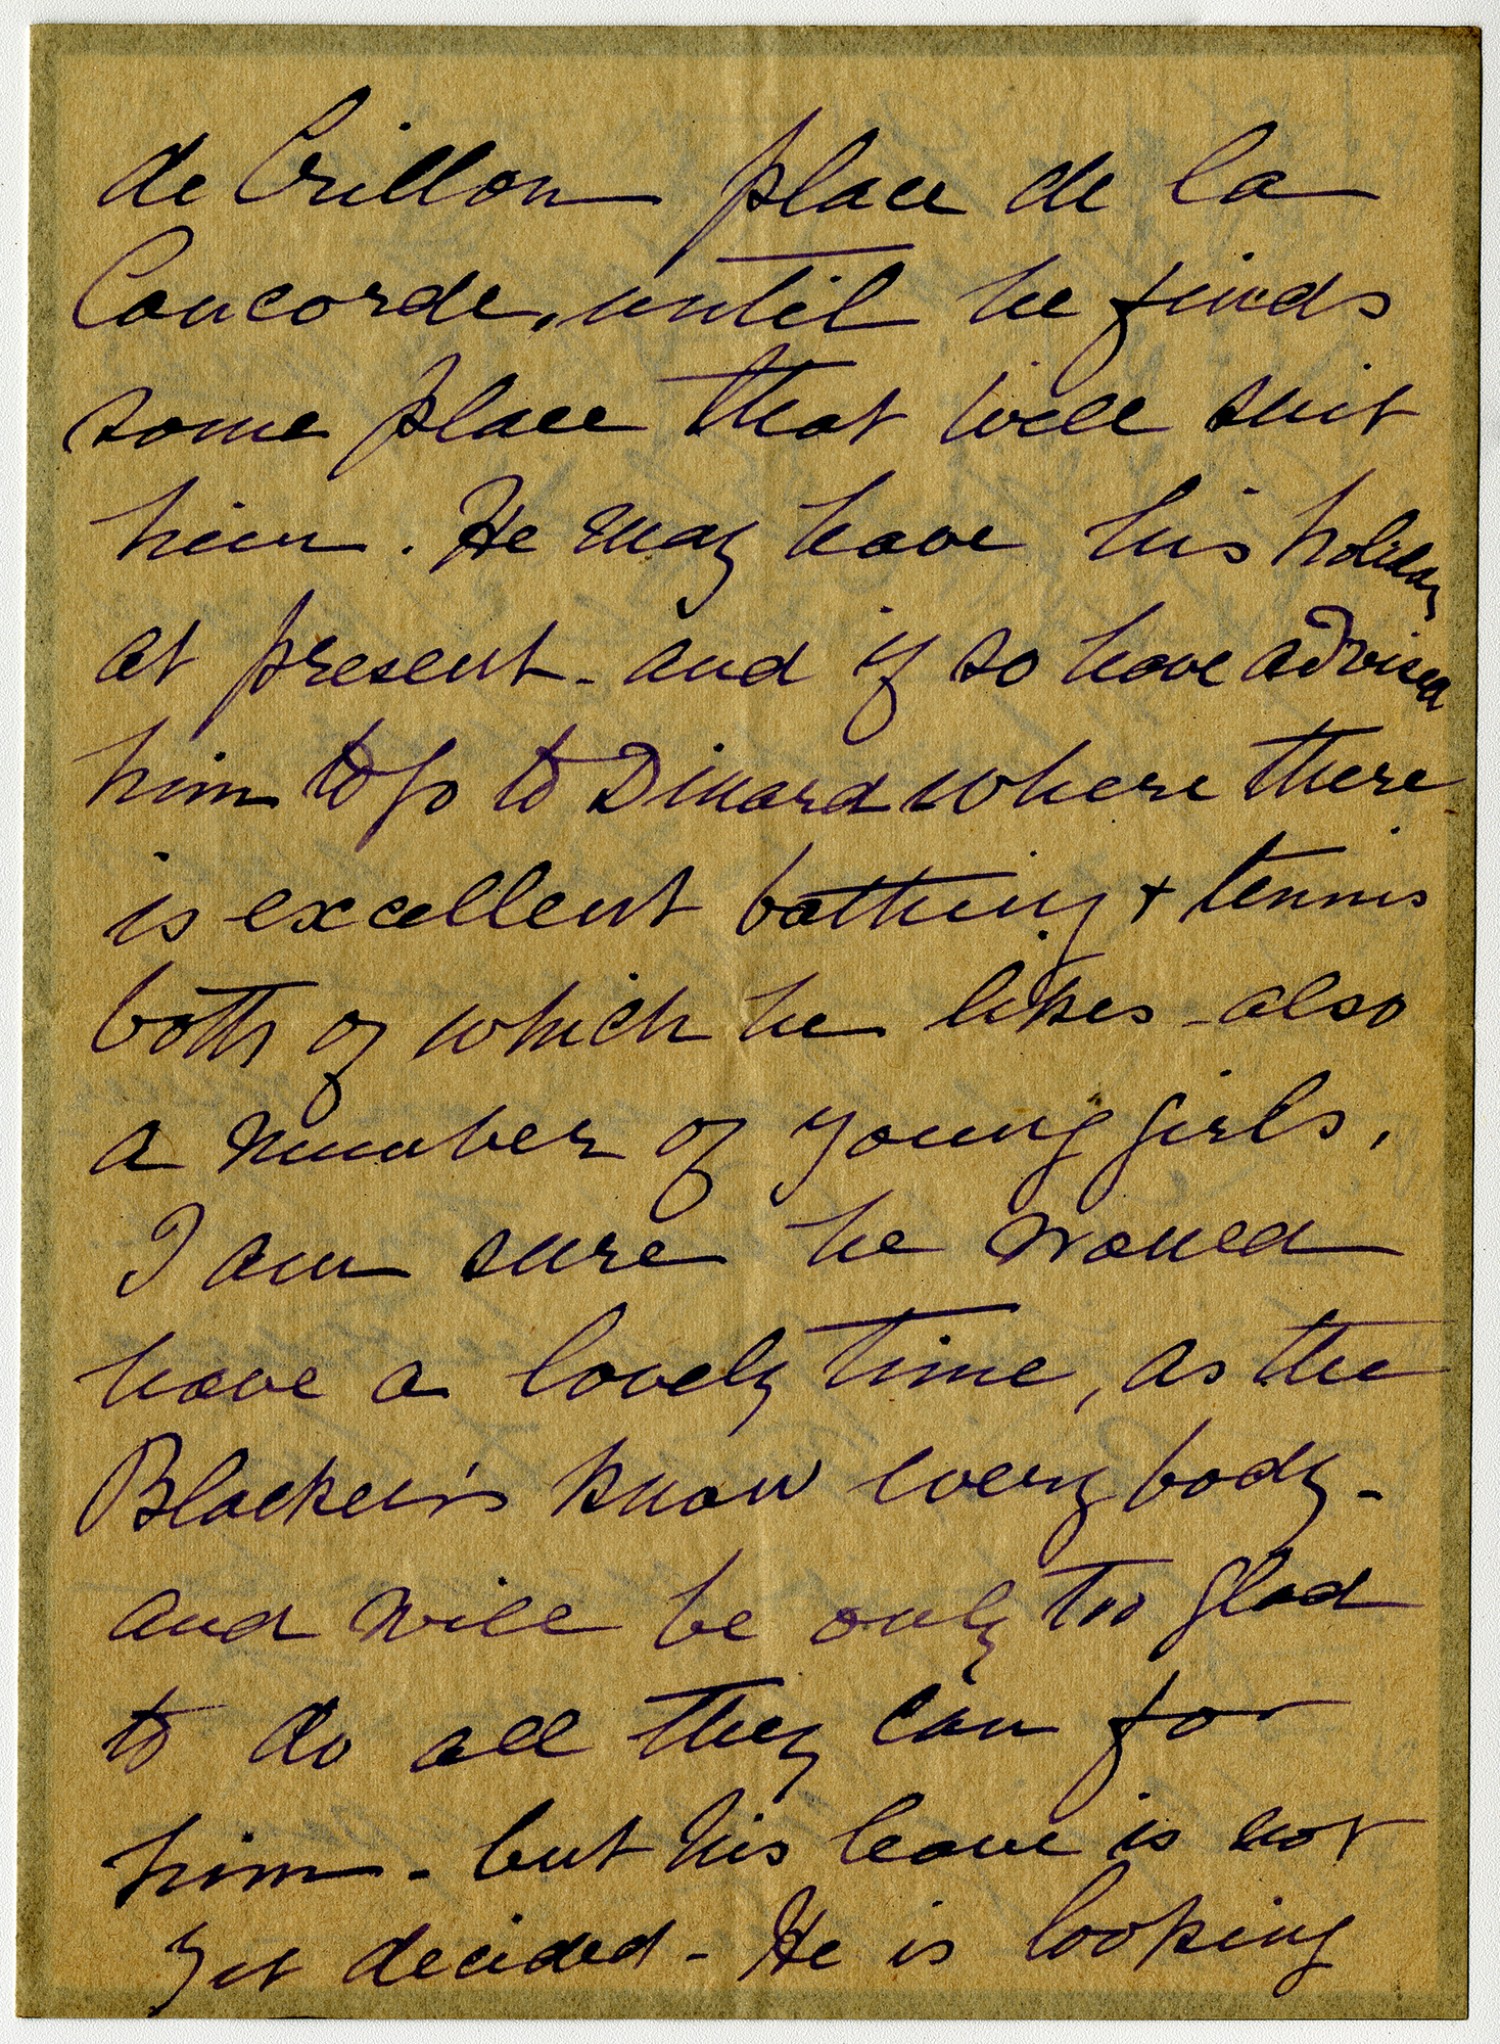 de Crillon place de la
Concorde, until he finds
some place that will suit
him. He may have his holiday
at present - and if so have advised
him to go to Dinard where there
is excellent bathing + tennis
both of which he likes - also
a number of young girls.
I am sure he would
have a lovely time, as the
know everybody -
and will be only too glad
to do all they can for
him - but his leave is not
yet decided - He is looking